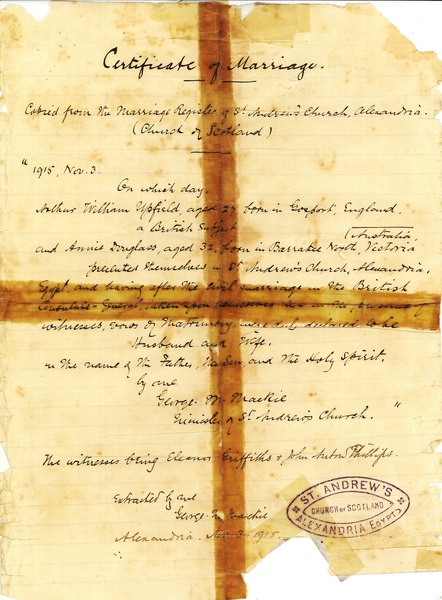 Certificate of Marriage.
Copied from the Marriage Register of St Andrew's Church, Alexandria.
(Church of Scotland)
"1915, Nov. 3.
On which day,
Arthur William Upfield, aged 27 born in Gosport, England,
a British Subject
(Australia,
and Annie Douglass, aged 32, born in Barrakee North, Victoria
presented themselves in St Andrew's Church, Alexandria,
Egypt and having after the civil marriage in the British
Consulate-General, taken upon themselves in the presence of
witnesses, vows of Matrimony, were duly declared to be
Husband and Wife.
in the name of the Father, the Son and the Holy Spirit.
by me
George M. Mackie
Minister of St Andrew's Church."
The witnesses being Eleanor Griffiths & John Phillips.
Extracted by me
George M. Mackie
Alexandria. Nov 3 1915.
ST. ANDREW'S
CHURCH OF SCOTLAND
ALEXANDRIA EGYPT